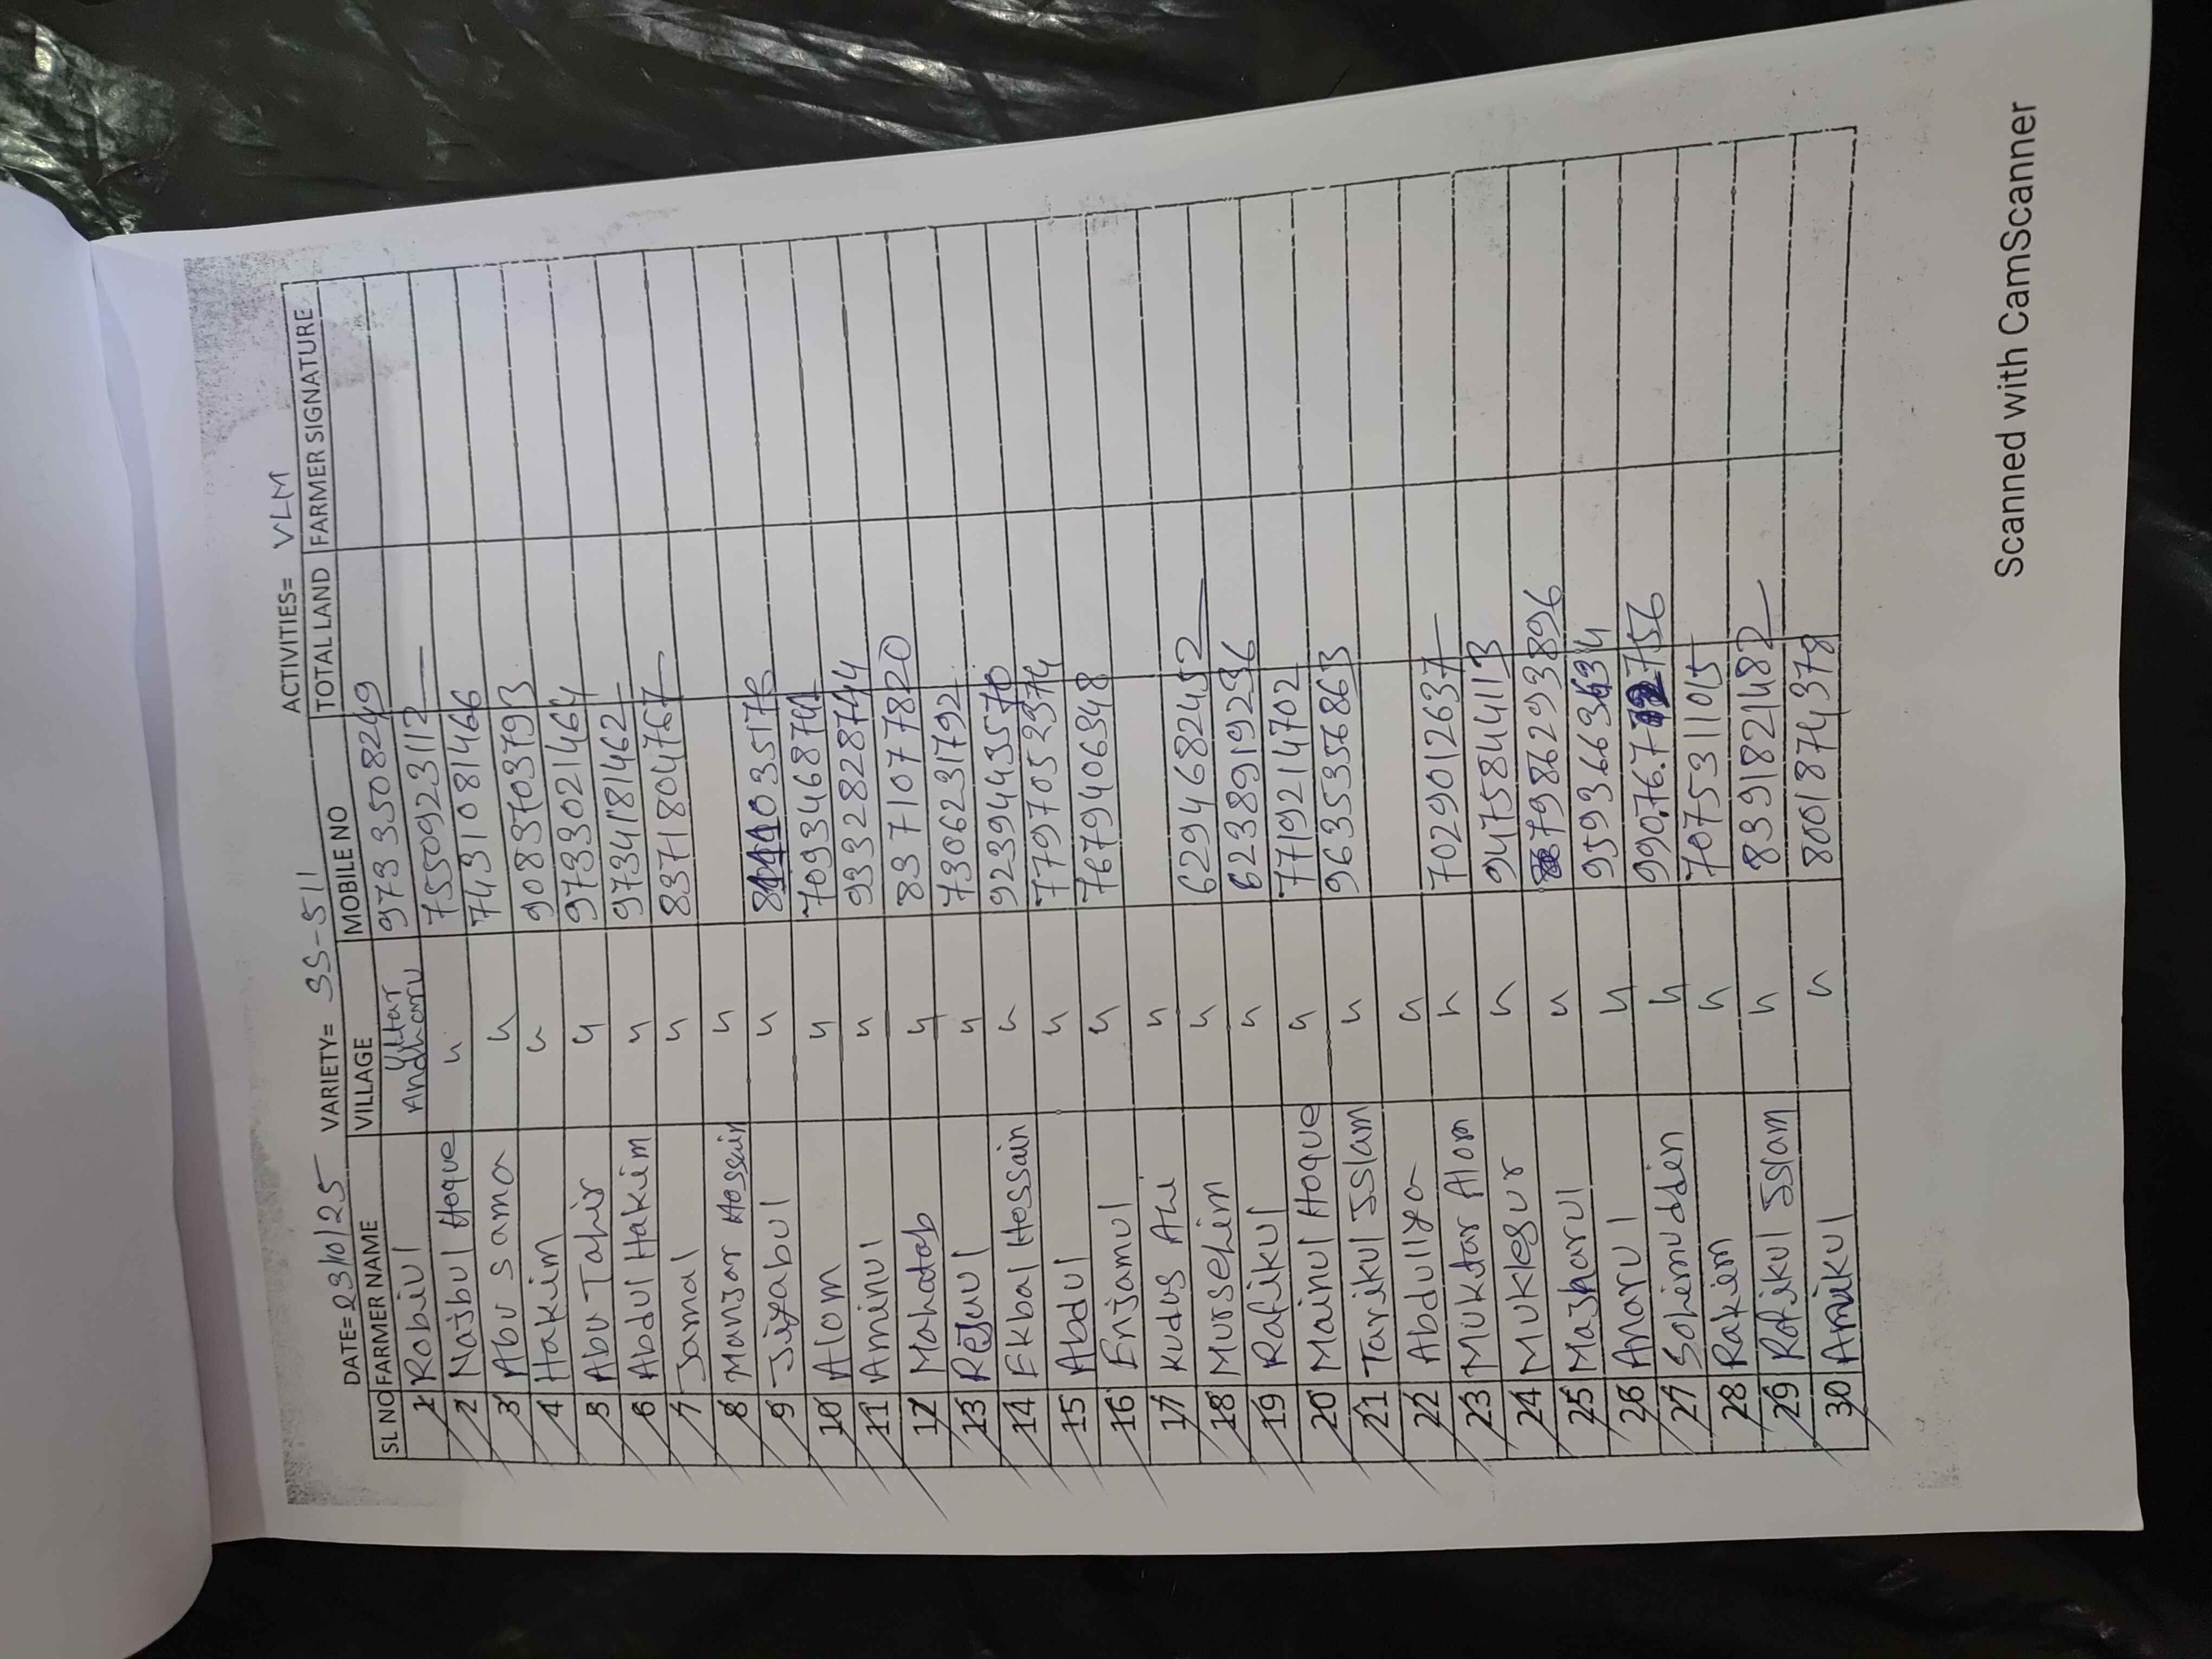 DATE= 23/10/25 VARIETY= SS-511 ACTIVITIES= VLM
SL NO FARMER NAME VILLAGE MOBILE NO TOTAL LAND FARMER SIGNATURE
1 Robiul Uttar Andharu 9733508249
2 Najbul Hoque " 7550923112
3 Abu Sama " 7431081466
4 Hakim " 9083703793
5 Abu Tahir " 9733021464
6 Abdul Hakim " 9734181462
7 Jamal " 8371804767
8 Manjar Hossain "
9 Jiyabul "
10 Alom " 7093468741
11 Aminul " 9332828744
12 Mahatab " 8371077820
13 Rejuul " 7306231792
14 Ekbal Hossain " 9239443570
15 Abdul " 7797052374
16 Enjamul " 7679406348
17 Kudus Ali "
18 Mursehim " 6294682452
19 Rafikul " 6238919236
20 Mainul Hoque " 7719214702
21 Tarikul Islam " 9635356863
22 Abdullya "
23 Muktar Alom " 7029012637
24 Muklesur " 9475844113
25 Mazharul " 867986293896
26 Anarul "
27 Sohimuddin "
28 Rakien " 7075311015
29 Rofikul Islam " 8391821482
30 Amikul " 8001874378
Scanned with CamScanner